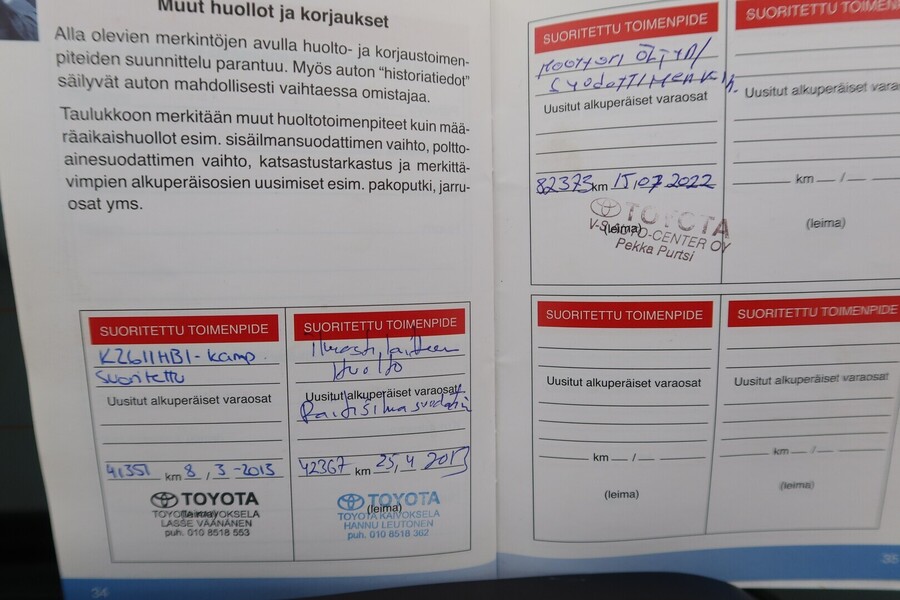 Muut huollot ja korjaukset
Alla olevien merkintöjen avulla huolto- ja korjaustoimen-
piteiden suunnittelu parantuu. Myös auton “historiatiedot”
säilyvät auton mahdollisesti vaihtaessa omistajaa.
Taulukkoon merkitään muut huoltotoimenpiteet kuin mää-
räaikaishuollot esim. sisäilmansuodattimen vaihto, poltto-
ainesuodattimen vaihto, katsastustarkastus ja merkittä-
vimpien alkuperäisosien uusimiset esim. pakoputki, jarru-
osat yms.
SUORITETTU TOIMENPIDE
KZ611HB1-kamp.
Suoritettu
Uusitut alkuperäiset varaosat
41351 km 8 , 3 -2013
TOYOTA
TOYOTA KAIVOKSELA
LASSE VÄÄNÄNEN
puh. 010 8518 553
SUORITETTU TOIMENPIDE
Ilmastilaitteen
Huolto
Uusitut alkuperäiset varaosat
Raitisilmasuodatin
42367 km 25, 4 2013
TOYOTA
(leima)
TOYOTA KAIVOKSELA
HANNU LEUTONEN
puh. 010 8518 362
34
SUORITETTU TOIMENPIDE
Moottori öljyn/
suodattimen
Uusitut alkuperäiset varaosat
82373 km 15,07 2022
TOYOTA
(leima)
V-S AUTO-CENTER OY
Pekka Purtsi
SUORITETTU TOIMEN
Uusitut alkuperäiset vara
km /
(leima)
SUORITETTU TOIMENPIDE
Uusitut alkuperäiset varaosat
km /
(leima)
SUORITETTU TOIMENPIDE
Uusitut alkuperäiset varaosat
km /
(leima)
35